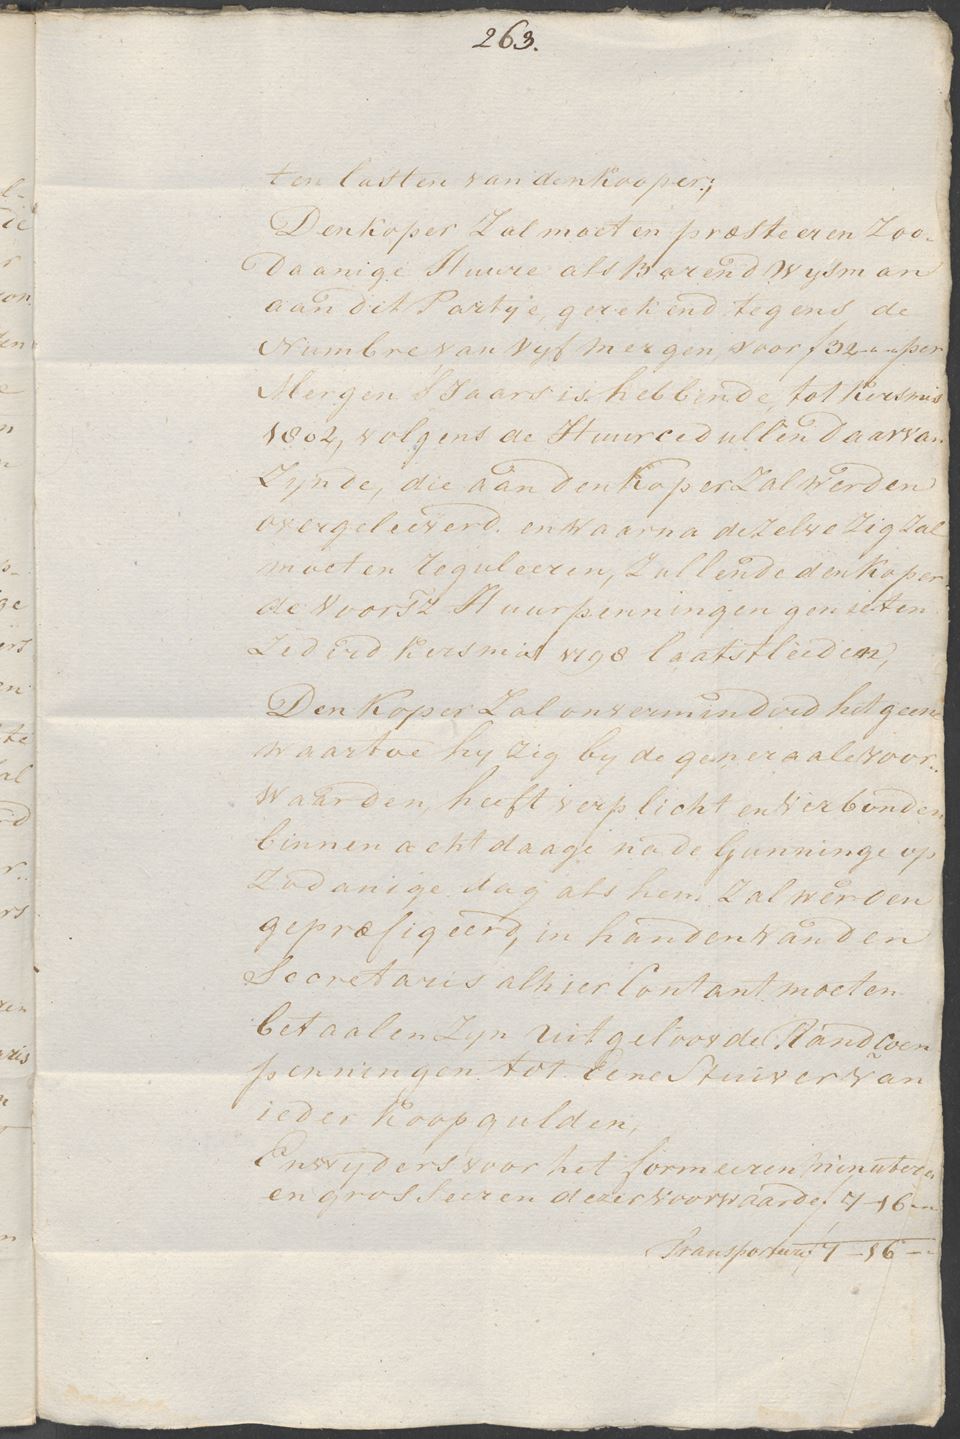 263.
ten lasten van den Kooper;
Den koper Zal moeten præsteeren Zoo-
Daanige Huure als Barend Wysman
aan dit Partye, gerekend tegens de
Numbre van Vyf mergen, voor f 32-"-" per
Mergen 's Jaars is hebbende, tot Kersmis
1802, volgens de Huurcedullen Daarvan
Zynde, die aan den Koper Zal werden
overgeleeverd. en waarna dezelve Zig Zal
moeten reguleeren, Zullende den Koper
de voorsz Huurpenningen genieten
Zederd Kersmis 1798 laatstleeden,
Den Koper Zal onvermindered het geen
waartoe hy Zig by de generaale voor-
waarden heeft verplicht en verbonden
binnen acht daage na de Gunninge op
Zodanige dag als hem Zal werden
gepræfigeerd, in handen van den
Secretaris alhier Contant moeten
betaalen Zyn uitgeloovde Randcoen
penningen tot Eene Stuiver van
ieder koopgulden,
En wyders voor het formeeren minuteren
en grosseeren dezer voorwaarde f 7-16-"
Transporteere f 7-16-"